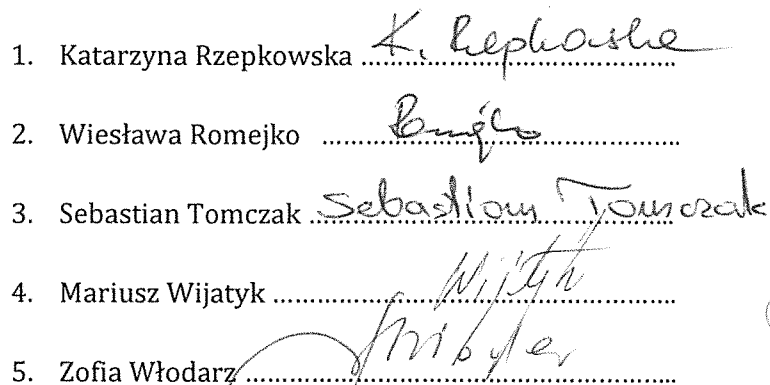 1. Katarzyna Rzepkowska ........ K. Rzepkowska
2. Wiesława Romejko ........
3. Sebastian Tomczak ........ Sebastian Tomczak
4. Mariusz Wijatyk ........ Wijatyk
5. Zofia Włodarz ........